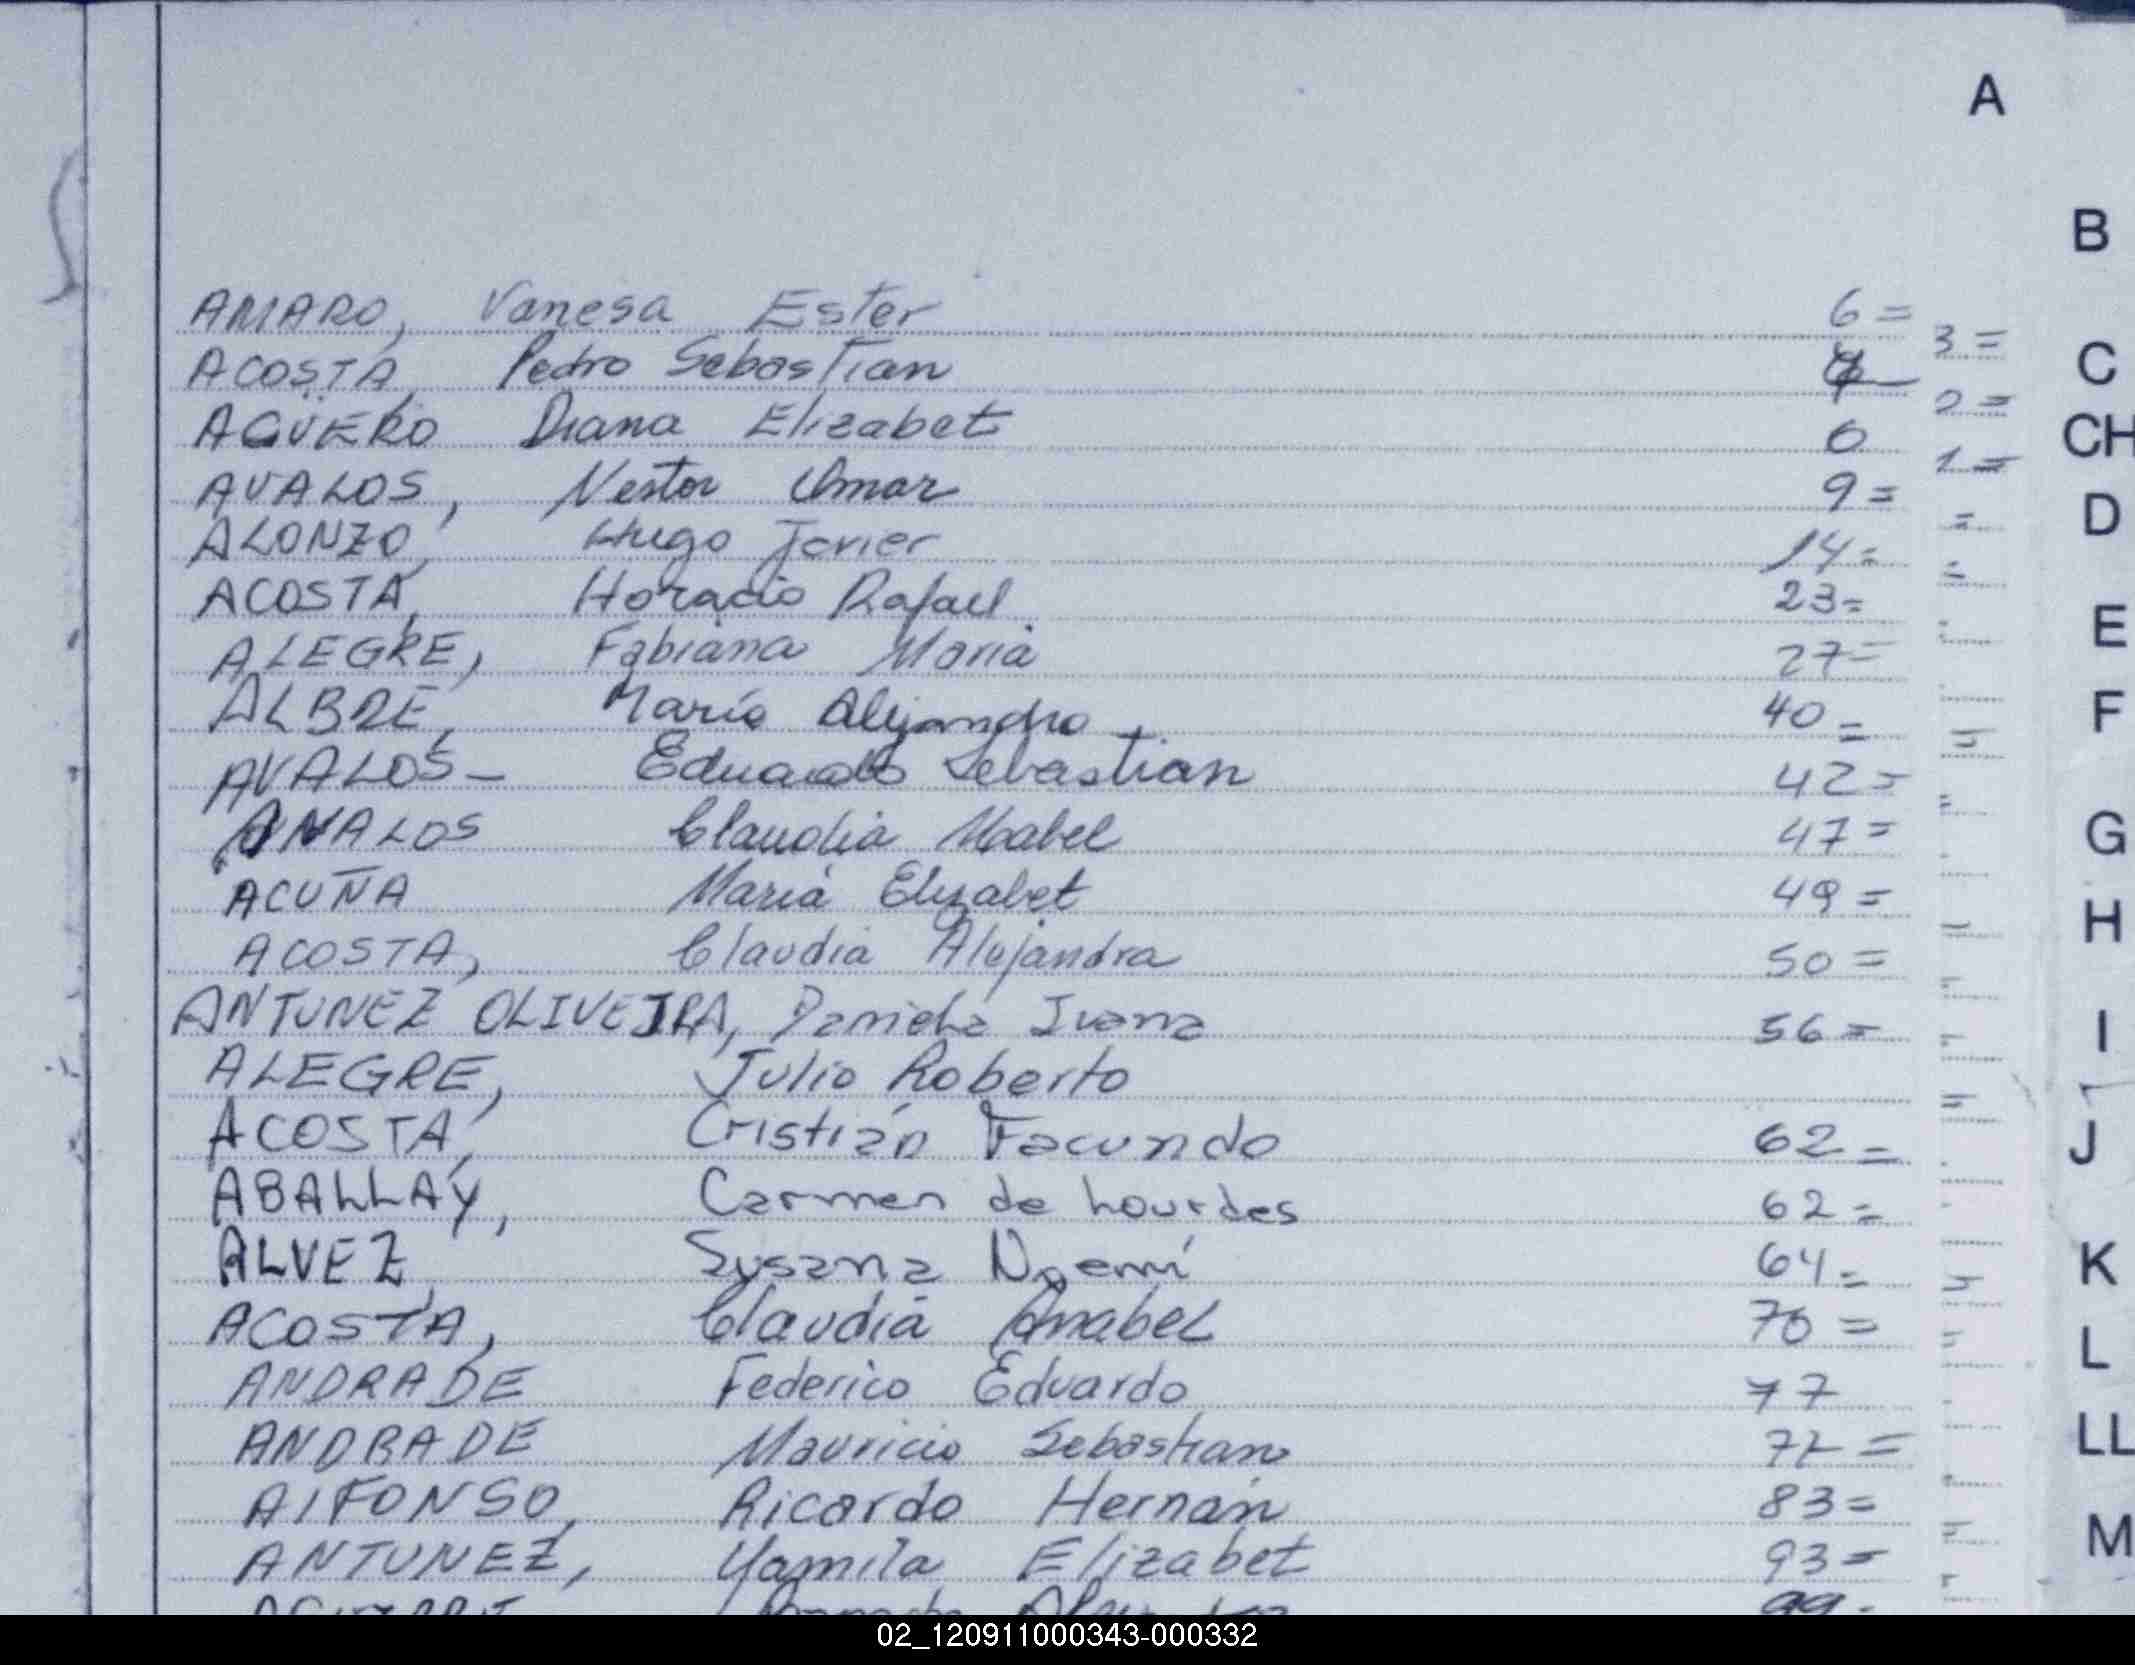 A
B
C
CH
D
E
F
G
H
I
J
K
L
LL
M
AMARO, Vanesa Ester 6=
ACOSTA, Pedro Sebastian 3=
AGÜERO Diana Elizabet 6
AVALOS, Nestor Omar 9=
ALONZO, Hugo Javier 14=
ACOSTA, Horacio Rafael 23=
ALEGRE, Fabiana Maria 27=
ALBRE, Mario Alejandro 40=
AVALOS- Eduardo Sebastian 42=
AVALOS Claudia Mabel 47=
ACUÑA Maria Elizabet 49=
ACOSTA, Claudia Alejandra 50=
ANTUNEZ OLIVEIRA, Daniela Ivana 56=
ALEGRE, Julio Roberto
ACOSTA, Cristián Facundo 62=
ABALLAY, Carmen de Lourdes 62=
ALVEZ, Susana Noemí 64=
ACOSTA, Claudia Anabel 70=
ANDRADE Federico Eduardo 77
ANDRADE Mauricio Sebastian 72=
AlFONSO, Ricardo Hernán 83=
ANTUNEZ, Yamila Elizabet 93=
99
02_120911000343-000332